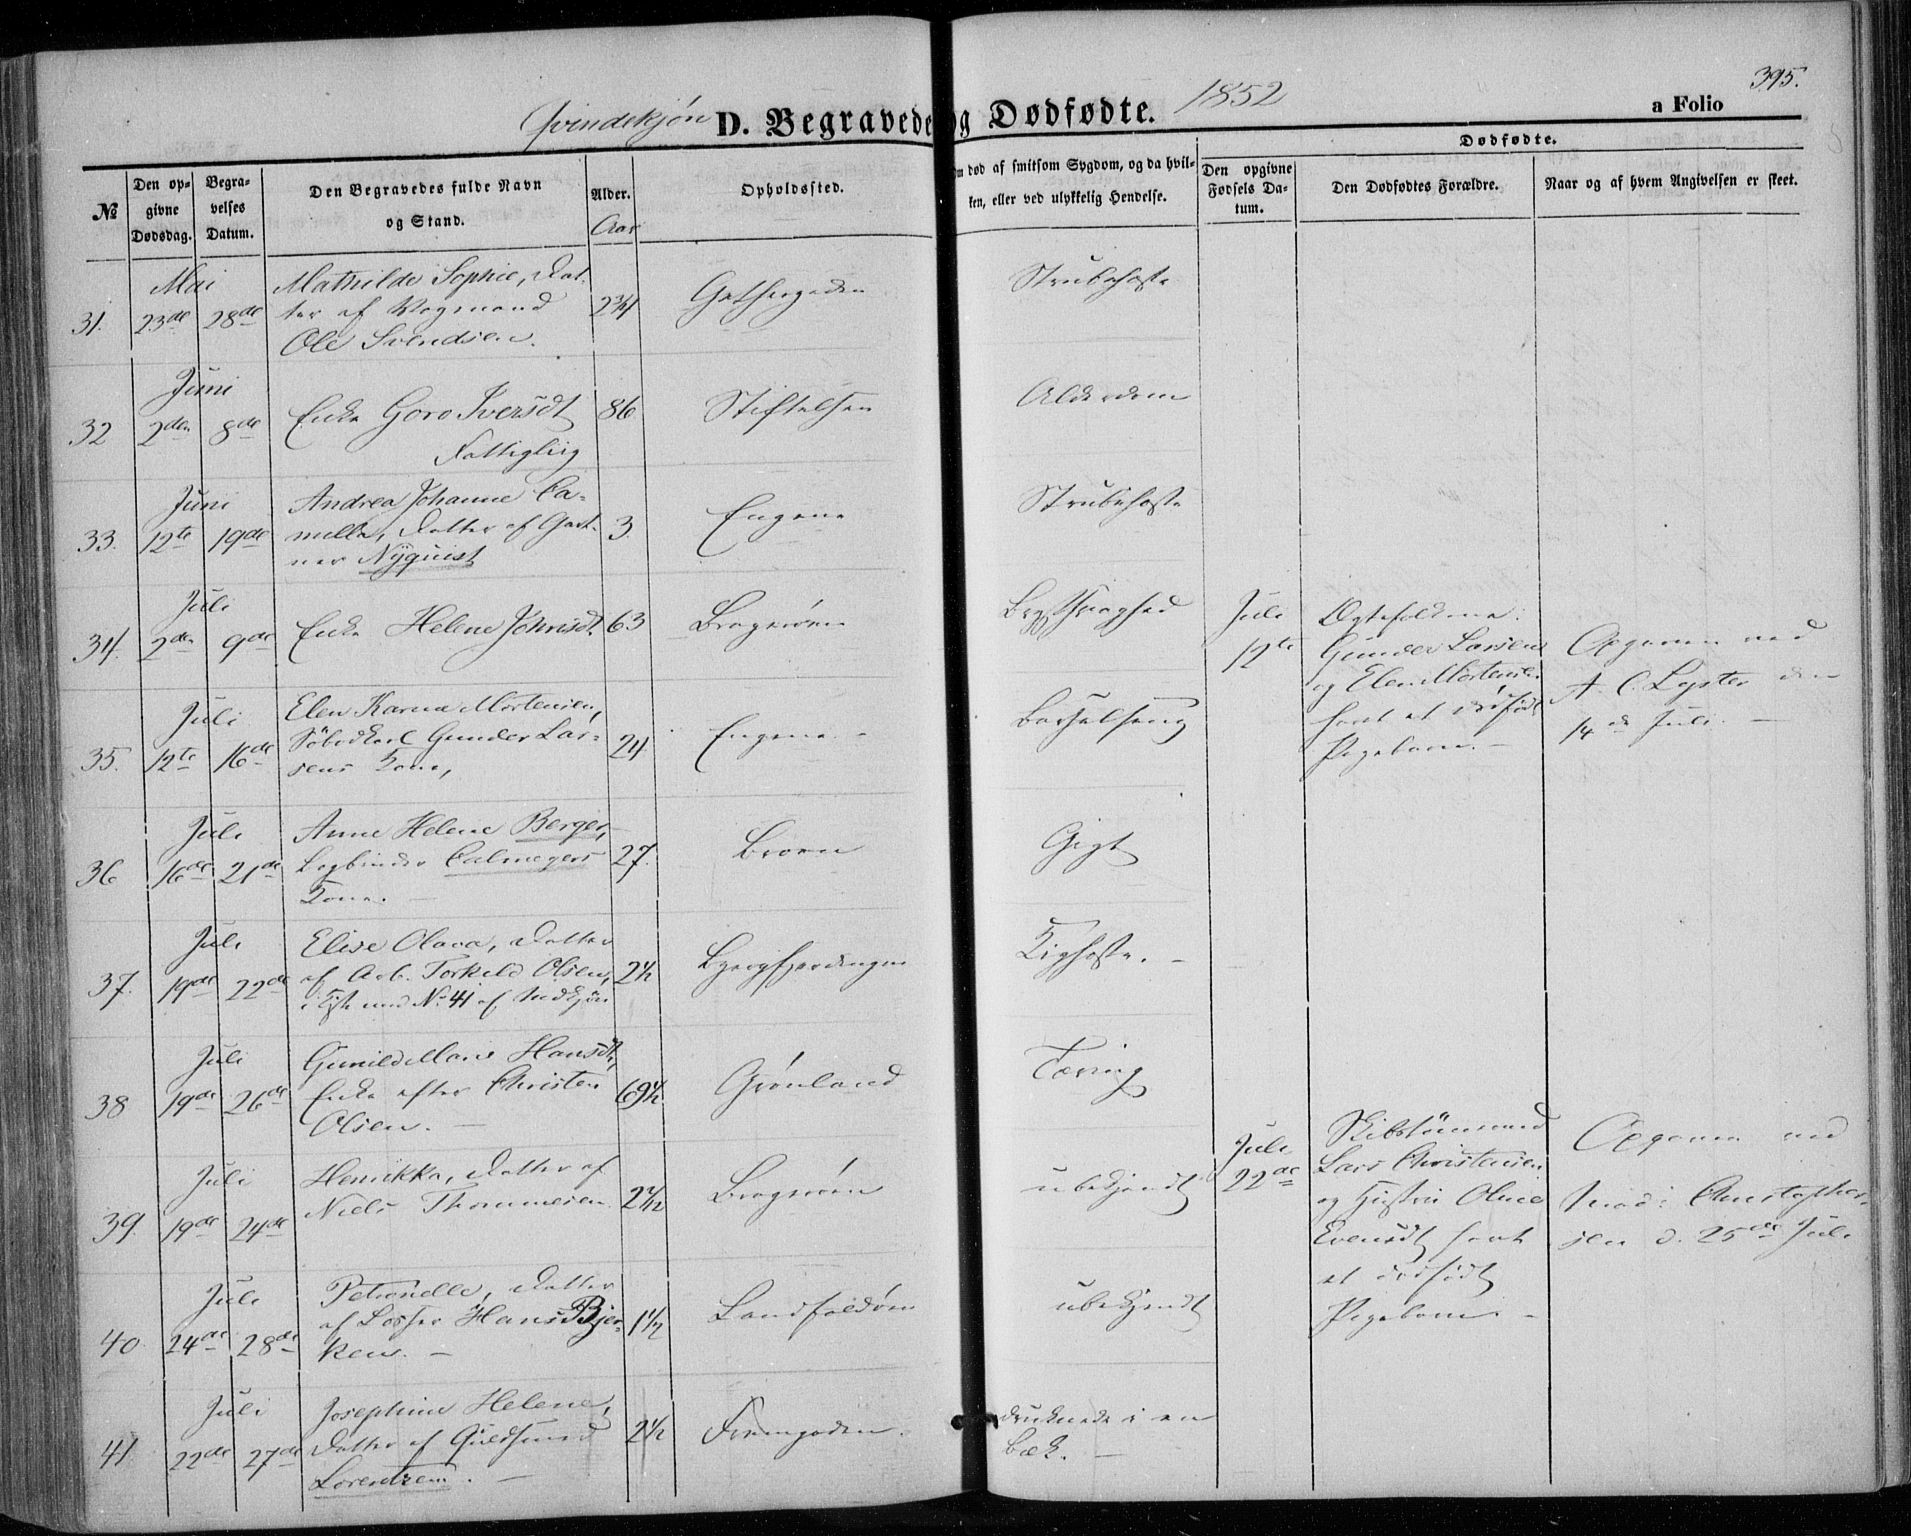 Qvindekjøn D. Begravede og Dødfødte. 1852
a Folio 395.
№
Den opgivne Dødsdag.
Begravelses Datum.
Den Begravedes fulde Navn og Stand.
Alder. Aar
Opholdssted.
død af smitsom Sygdom, og da hvilken, eller ved ulykkelig Hendelse.
Dødfødte.
Den opgivne Fødsels Datum.
Den Dødfødtes Forældre.
Naar og af hvem Angivelsen er skeet.
31. Mai 23de 28de
Mathilde Sophie, Dat-
ter af Vogmand
Ole Svendsen.
2 3/4
Strubehoste
32 Juni 2den 8de
Enke Goro Iversdt
Fattiglig
86
Stiftelsen
Alderdom
33. Juni 12te 19de
Andrea Johanne Ca-
milla, Datter af Gart-
ner Nyquist
3
Engene
Strubehoste
34. Juli 2den 9de
Enke Helene Johnsdt.
63
Bragerøen
Brystsvaghed
35. Juli 12te 16de
Elen Karine Mortensen,
Gunder Lar-
sens Kone,
24.
Engene. -
Barselseng
Juli 12te
Ægtefolkene:
Gunder Larsen
og Elen Mortensen
havt et dødfødt
Pigebarn. -
Opgaven ved
A. C. Lyster den
14de Juli. -
36 Juli 16de 21de
Anne Helene Berger,
Bogbinder Calmeyers
Kone. -
27.
Broen
Gigt
37. Juli 19de 22de
Elise Olava, Datter
af Arb. Torkild Olsen,
No 41 af Mdkjøn
2 1/2
Bjergfjerdingen
Kighoste. -
38 Juli 19de 26de
Gunild Marie Hansdt,
Enke efter Christen
Olsen. -
69 1/2
Grønland
Tæring
39. Juli 19de 24de
Henrikka, Datter af
Niels Thommesen
Bragerøen
ubekjendt
Juli 22de
Skibstømmermand
Lars Christensen
og Hustru Oline
Evensdt havt
et dødfødt
Pigebarn -
Opgaven ved
Mad: Christopher-
sen d. 25de Juli
40. Juli 24de 28de
Petronelle, Datter
af Losser Hans Bjer-
ken. -
1 1/2
Landfaldøen
ubekjendt
41 Juli 22de 27de
Josephine Helene,
Datter af Guldsmed
Lorentzen. -
2 1/2
druknede i en
Bæk. -